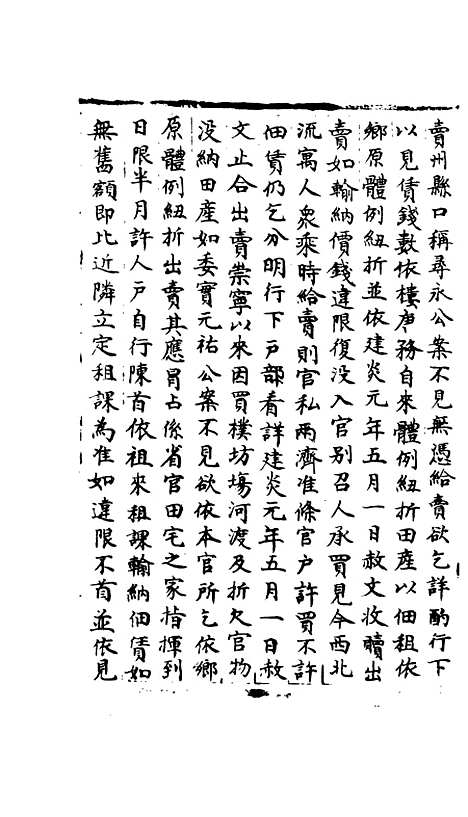 賣州縣口稱尋永公案不見無憑給賣欲乞詳酌行下
以見賃錢數依樓店務自來體例紐折田産以佃租依
鄉原體例紐折並依建炎元年五月一日赦文收贖出
賣如輸納價錢違限復没入官别召人承買見今西北
流寓人衆乘時給賣則官私兩濟准條官户許買不許
佃賃仍乞分明行下户部看詳建炎元年五月一日赦
文止合出賣崇寧以來因買樸坊塲河渡及折欠官物
没納田産如委實元祐公案不見欲依本官所乞依鄉
原體例紐折出賣其應冒占係省官田宅之家指揮到
日限半月許人户自行陳首依祖來租課輸納佃賃如
無舊額即比近隣立定租課為准如違限不首並依見